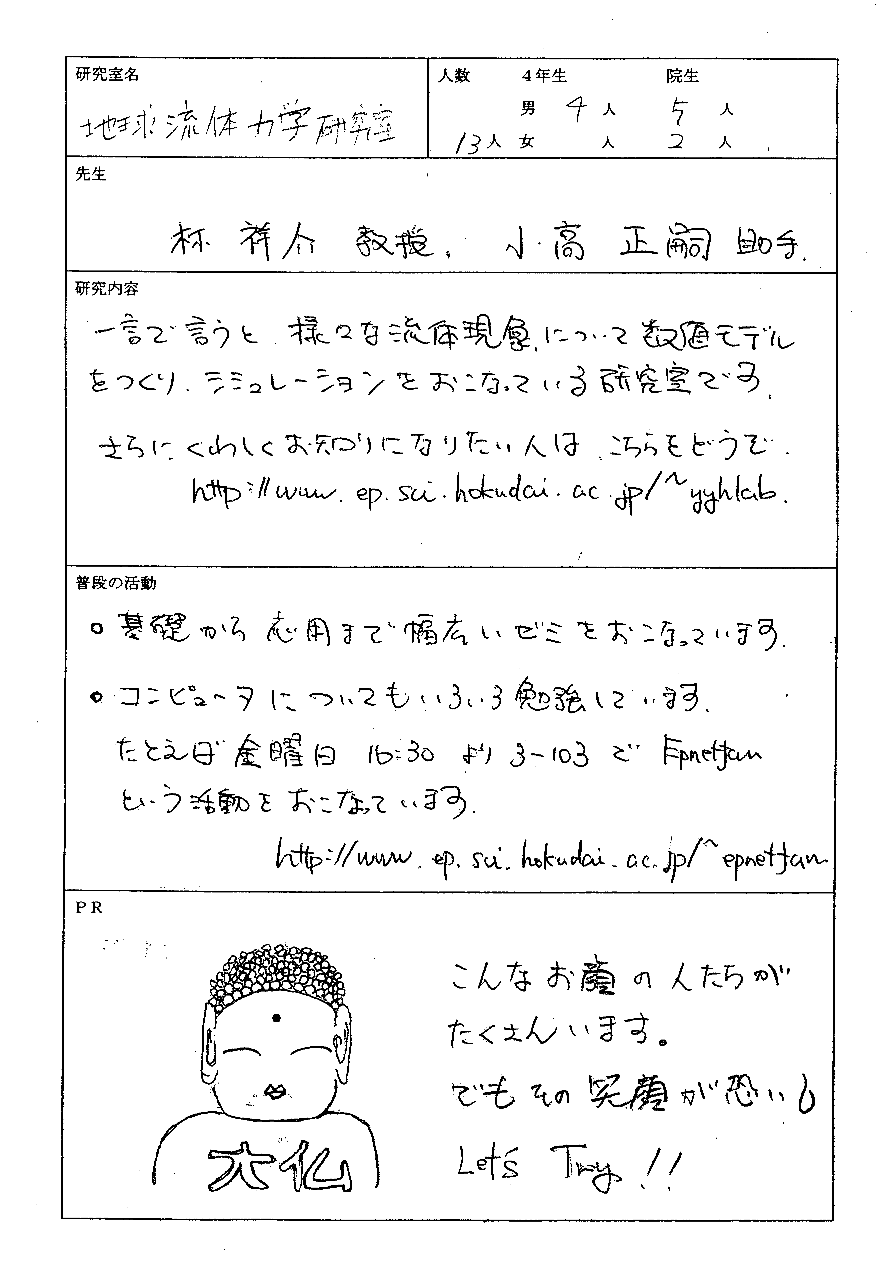 研究室名
地球流体力学研究室
人数 4年生 院生
男 4 人 5 人
13人 女 人 2 人
先生
林 祥介 教授、 小高 正嗣 助手.
研究内容
一言で言うと、様々な流体現象、について数値モデル
をつくり、シミュレーションをおこなっている研究室です。
さらに、くわしくお知りになりたい人は、こちらをどうぞ.
http://www.ep.sci.hokudai.ac.jp/~yyhlab.
普段の活動
○ 基礎から応用まで幅広いゼミをおこなっています.
○ コンピュータについてもいろいろ勉強しています.
たとえば金曜日 16:30 より 3-103 で Epnetfan
という活動をおこなっています.
http://www.ep.sci.hokudai.ac.jp/~epnetfan
PR
こんなお顔の人たちが
たくさんいます。
でもその笑顔が恐い
Let's Try!!
大仏